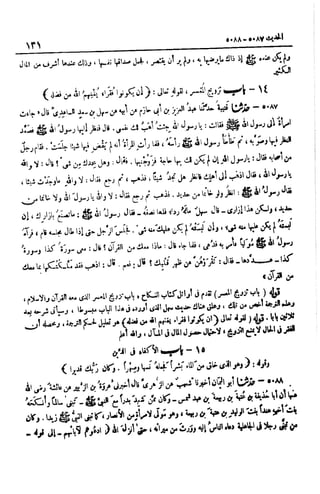 الحديث ٥٠٨٧ - ٥٠٨٨
١٣١
ولم يكن عنده ﷺ إذ ذاك ما يرضيها به، ولم ير أن يقتصر، فجعل صداقها نفسها، وذلك عندها أشرف من المال
الكثير
١٤ - باب تزويج المعسر، لقوله تعالى: ﴿إن يكونوا فقراء يغنهم الله من فضله﴾
٥٠٨٧ - حدثنا قتيبة حدثنا عبد العزيز بن أبي حازم عن أبيه عن سهل بن سعد الساعدي قال «جاءت
امرأة إلى رسول الله ﷺ فقالت: يا رسول الله جئت أهب لك نفسي. قال فنظر إليها رسول الله ﷺ فصعد
النظر فيها وصوبه، ثم طأطأ رسول الله ﷺ رأسه، فلما رأت المرأة أنه لم يقض فيها شيئا جلست. فقام رجل
من أصحابه فقال: يا رسول الله إن لم يكن لك بها حاجة فزوجنيها. فقال: وهل عندك من شيء؟ قال: لا والله
يا رسول الله، فقال: اذهب إلى أهلك فانظر هل تجد شيئا، فذهب، ثم رجع فقال: لا والله ما وجدت شيئا،
فقال رسول الله ﷺ: انظر ولو خاتما من حديد. فذهب ثم رجع فقال: لا والله يا رسول الله ولا خاتما من
حديد، ولكن هذا إزاري - قال سهل: ماله رداء - فلها نصفه - فقال رسول الله ﷺ: ما تصنع بإزارك، إن
لبسته لم يكن عليها منه شيء، وإن لبسته لم يكن عليك منه شيء. فجلس الرجل حتى إذا طال مجلسه قام، فرآه
رسول الله ﷺ موليا فأمر به فدعي، فلما جاء قال: ماذا معك من القرآن؟ قال: معي سورة كذا وسورة
كذا - عددها - فقال: تقرؤهن عن ظهر قلبك؟ قال: نعم. قال: اذهب فقد ملكتكها بما معك
من القرآن»
قوله (باب تزويج المعسر) تقدم في أوائل كتاب النكاح «باب تزويج المعسر الذي معه القرآن والإسلام،
وهذه الترجمة أخص من تلك، وعلق هناك حديث سهل الذي أورده في هذا الباب مبسوطا، وسيأتي شرحه بعد
ثلاثين بابا. قوله (لقوله تعالى: إن يكونوا فقراء يغنهم الله من فضله) هو تعليل لحكم الترجمة، ومحصله أن
الفقر في الحال لا يمنع التزويج، لاحتمال حصول المال في المآل، والله أعلم
١٥ - باب الأكفاء في الدين
وقوله: ﴿وهو الذي خلق من الماء بشرا فجعله نسبا وصهرا، وكان ربك قديرا﴾
٥٠٨٨ - حدثنا أبو اليمان أخبرنا شعيب عن الزهري قال أخبرني عروة بن الزبير عن عائشة رضي الله
عنها أن أبا حذيفة بن عتبة بن ربيعة بن عبد شمس - وكان ممن شهد بدرا مع النبي ﷺ - تبنى سالما وأنكحه
بنت أخيه هندا بنت الوليد بن عتبة بن ربيعة، وهو مولى لامرأة من الأنصار، كما تبنى النبي ﷺ زيدا. وكان
من تبنى رجلا في الجاهلية دعاه الناس إليه وورث من ميراثه، حتى أنزل الله ﴿ادعوهم لآبائهم - إلى قوله -